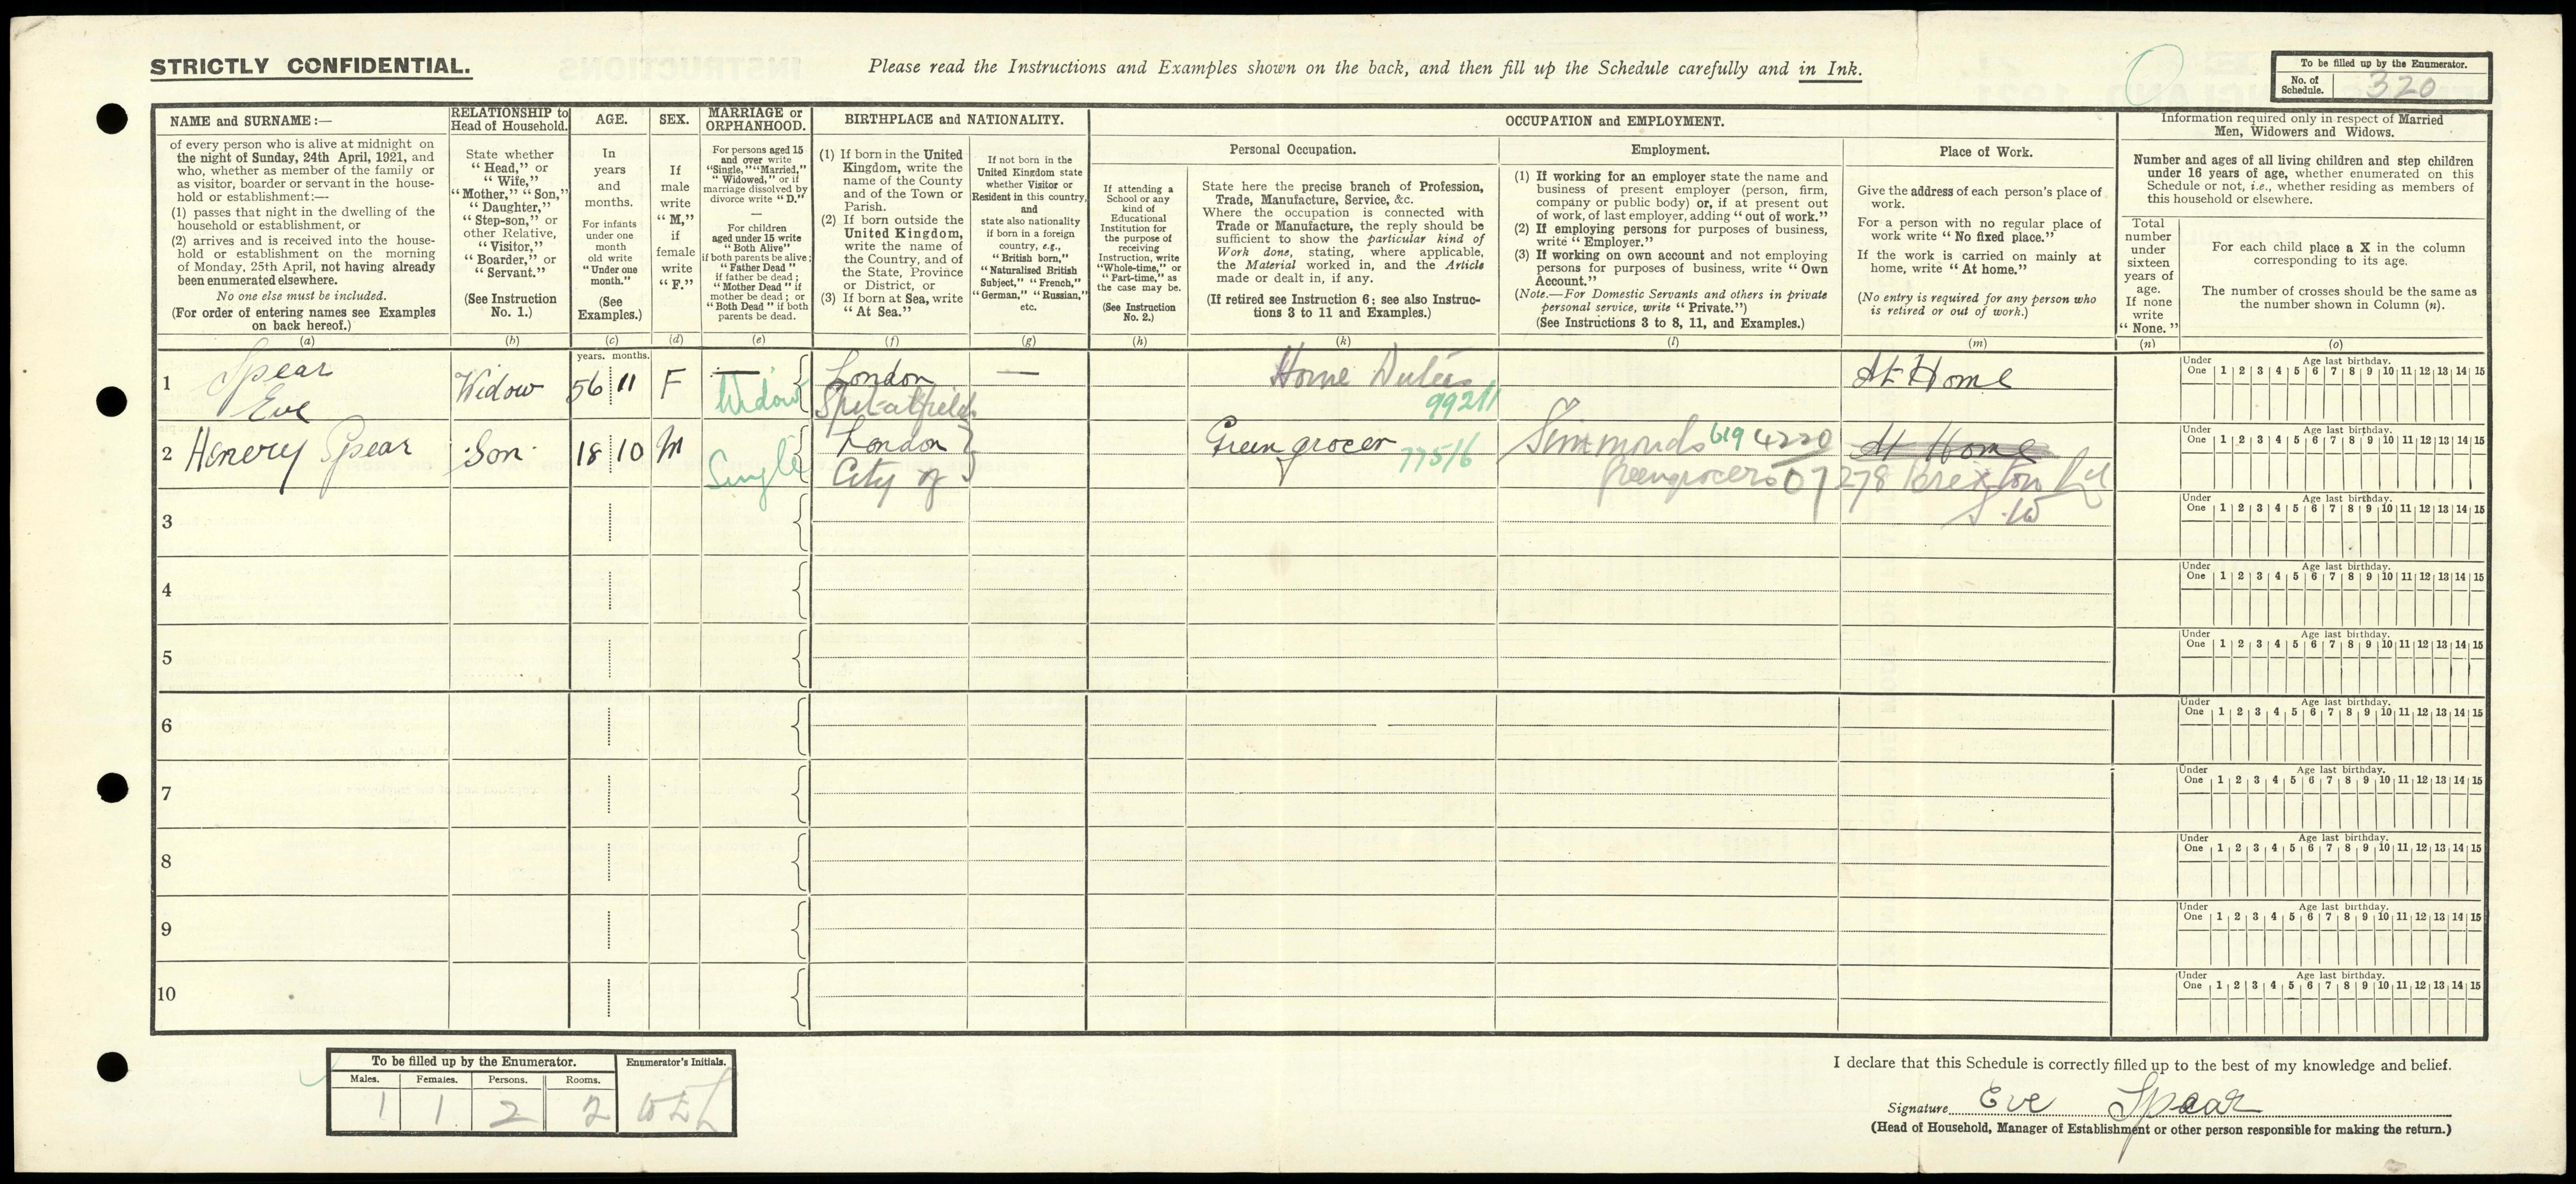 STRICTLY CONFIDENTIAL.
Please read the Instructions and Examples shown on the back, and then fill up the Schedule carefully and in Ink.
To be filled up by the Enumerator.
No. of Schedule. 320
NAME and SURNAME:—
of every person who is alive at midnight on
the night of Sunday, 24th April, 1921, and
who, whether as member of the family or
as visitor, boarder or servant in the house-
hold or establishment:—
(1) passes that night in the dwelling of the
household or establishment, or
(2) arrives and is received into the house-
hold or establishment on the morning
of Monday, 25th April, not having already
been enumerated elsewhere.
No one else must be included.
(For order of entering names see Examples
on back hereof.)
(a)
RELATIONSHIP to
Head of Household.
State whether
"Head," or
"Wife,"
"Mother," "Son,"
"Daughter,"
"Step-son," or
other Relative,
"Visitor,"
"Boarder," or
"Servant."
(See Instruction
No. 1.)
(b)
AGE.
In
years
and
months.
For infants
under one
month
old write
"Under one
month."
(See
Examples.)
(c)
SEX.
If
male
write
"M,"
if
female
write
"F."
(d)
MARRIAGE or
ORPHANHOOD.
For persons aged 15
and over write
"Single," "Married,"
"Widowed," or if
marriage dissolved by
divorce write "D."
—
For children
aged under 15 write
"Both Alive"
if both parents be alive;
"Father Dead"
if father be dead;
"Mother Dead" if
mother be dead; or
"Both Dead" if both
parents be dead.
(e)
BIRTHPLACE and NATIONALITY.
(1) If born in the United
Kingdom, write the
name of the County
and of the Town or
Parish.
(2) If born outside the
United Kingdom,
write the name of
the Country, and of
the State, Province
or District, or
(3) If born at Sea, write
"At Sea."
(f)
If not born in the
United Kingdom state
whether Visitor or
Resident in this country,
and
state also nationality
if born in a foreign
country, e.g.,
"British born,"
"Naturalised British
Subject," "French,"
"German," "Russian,"
etc.
(g)
OCCUPATION and EMPLOYMENT.
If attending a
School or any
kind of
Educational
Institution for
the purpose of
receiving
Instruction, write
"Whole-time," or
"Part-time," as
the case may be.
(See Instruction
No. 2.)
(h)
Personal Occupation.
State here the precise branch of Profession,
Trade, Manufacture, Service, &c.
Where the occupation is connected with
Trade or Manufacture, the reply should be
sufficient to show the particular kind of
Work done, stating, where applicable,
the Material worked in, and the Article
made or dealt in, if any.
(If retired see Instruction 6; see also Instruc-
tions 3 to 11 and Examples.)
(k)
Employment.
(1) If working for an employer state the name and
business of present employer (person, firm,
company or public body) or, if at present out
of work, of last employer, adding "out of work."
(2) If employing persons for purposes of business,
write "Employer."
(3) If working on own account and not employing
persons for purposes of business, write "Own
Account."
(Note.—For Domestic Servants and others in private
personal service, write "Private.")
(See Instructions 3 to 8, 11, and Examples.)
(l)
Place of Work.
Give the address of each person's place of
work.
For a person with no regular place of
work write "No fixed place."
If the work is carried on mainly at
home, write "At home."
(No entry is required for any person who
is retired or out of work.)
(m)
Information required only in respect of Married
Men, Widowers and Widows.
Number and ages of all living children and step children
under 16 years of age, whether enumerated on this
Schedule or not, i.e., whether residing as members of
this household or elsewhere.
Total
number
under
sixteen
years of
age.
If none
write
"None."
(n)
For each child place a X in the column
corresponding to its age.
The number of crosses should be the same as
the number shown in Column (n).
(o)
years. months.
1 Spear Eve Widow 56 11 F — Widow London Spitalfields — Home Duties 992/1 At Home
Under One Age last birthday. 1 2 3 4 5 6 7 8 9 10 11 12 13 14 15
2 Henery Spear Son 18 10 M Single London City of Greengrocer 775/6 Simmonds 619 4220 Greengrocers 07 At Home 278 Brixton Rd S.W
Under One Age last birthday. 1 2 3 4 5 6 7 8 9 10 11 12 13 14 15
3
Under One Age last birthday. 1 2 3 4 5 6 7 8 9 10 11 12 13 14 15
4
Under One Age last birthday. 1 2 3 4 5 6 7 8 9 10 11 12 13 14 15
5
Under One Age last birthday. 1 2 3 4 5 6 7 8 9 10 11 12 13 14 15
6
Under One Age last birthday. 1 2 3 4 5 6 7 8 9 10 11 12 13 14 15
7
Under One Age last birthday. 1 2 3 4 5 6 7 8 9 10 11 12 13 14 15
8
Under One Age last birthday. 1 2 3 4 5 6 7 8 9 10 11 12 13 14 15
9
Under One Age last birthday. 1 2 3 4 5 6 7 8 9 10 11 12 13 14 15
10
Under One Age last birthday. 1 2 3 4 5 6 7 8 9 10 11 12 13 14 15
To be filled up by the Enumerator. Enumerator's Initials.
Males. Females. Persons. Rooms.
1 1 2 2
I declare that this Schedule is correctly filled up to the best of my knowledge and belief.
Signature Eve Spear
(Head of Household, Manager of Establishment or other person responsible for making the return.)